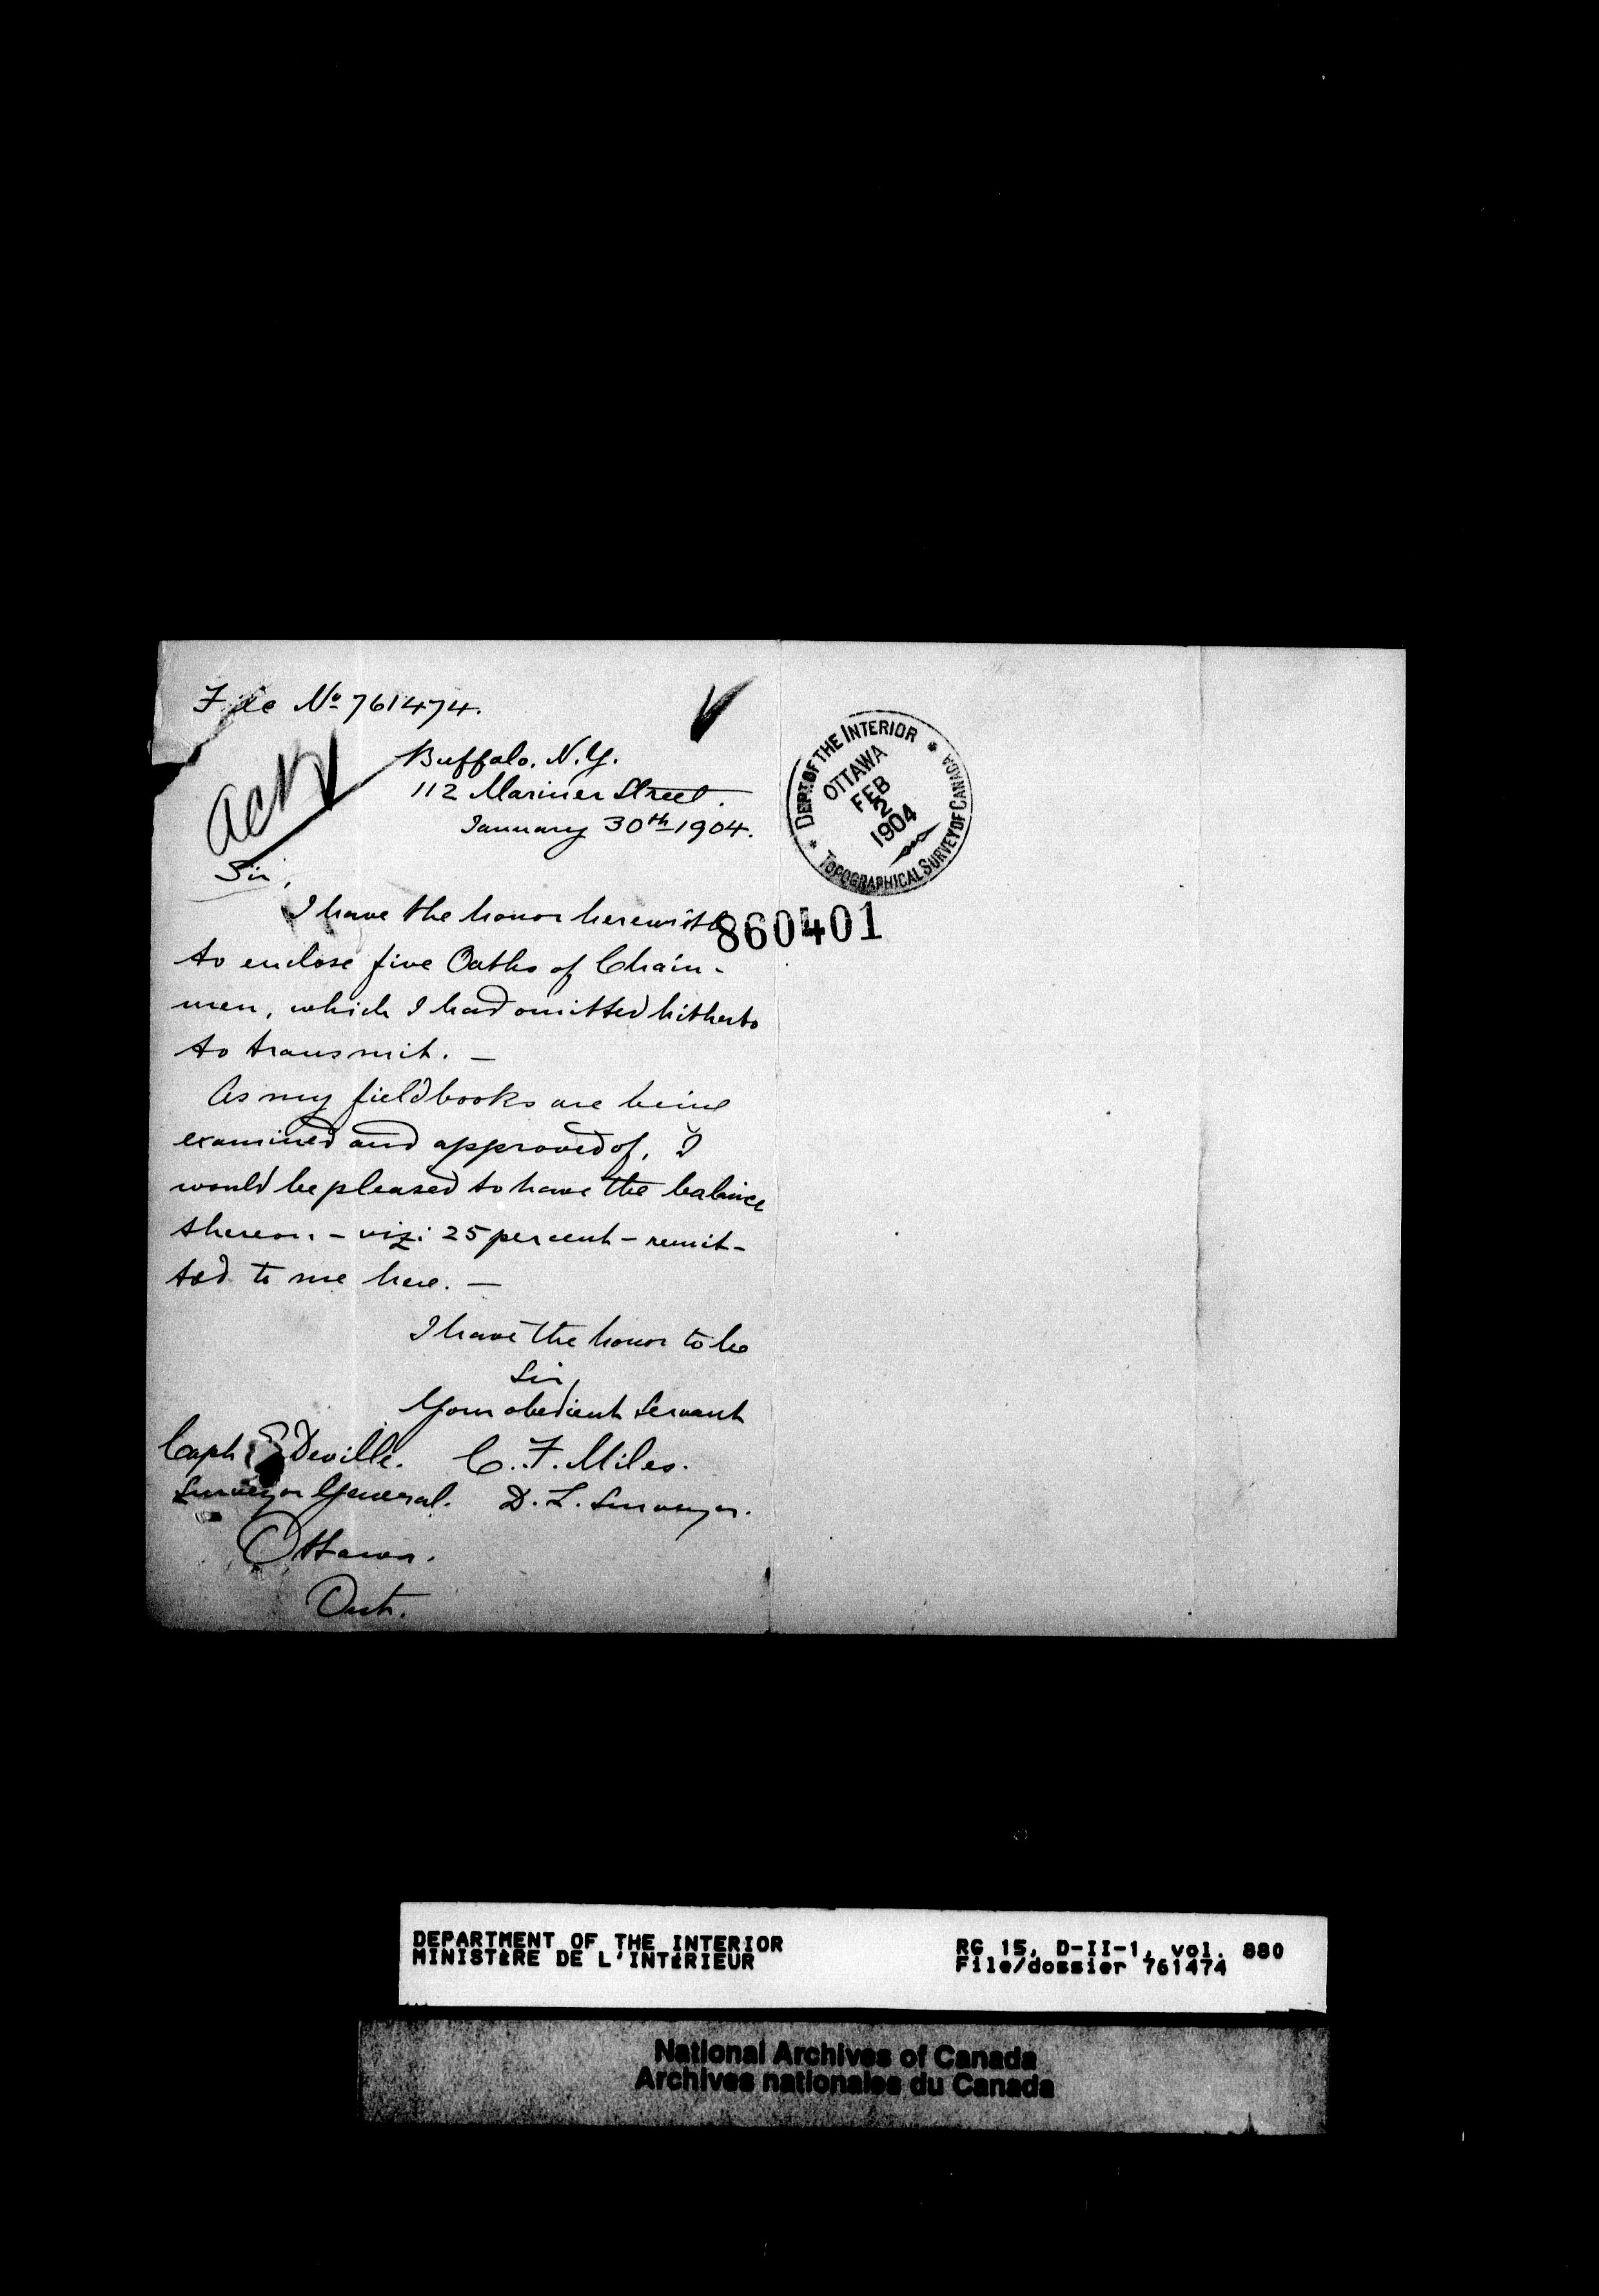 File No 761474.
Ack
Buffalo. N.Y.
112 Mariner Street.
January 30th 1904.
DEPT. OF THE INTERIOR
OTTAWA
FEB
2
1904
TOPOGRAPHICAL SURVEY OF CANADA
860401
Sir,
I have the honor herewith
to enclose five Oaths of Chain-
men, which I had omitted hitherto
to transmit. —
As my fieldbooks are being
examined and approved of, I
would be pleased to have the balance
thereon - viz: 25 per cent - remit-
ted to me here. —
I have the honor to be
Sir,
Your obedient Servant
C. F. Miles.
D. L. Surveyor.
Capt E Deville.
Surveyor General.
Ottawa.
Ont.
DEPARTMENT OF THE INTERIOR
MINISTÈRE DE L'INTÉRIEUR
RG 15, D-II-1, vol. 880
File/dossier 761474
National Archives of Canada
Archives nationales du Canada